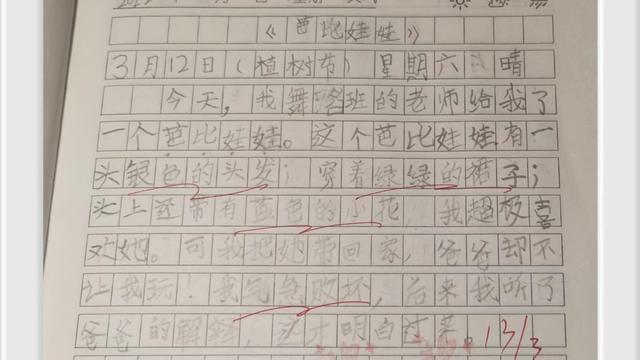 《芭比娃娃》
3月12日（植树节）星期六 晴
今天，我舞蹈班的老师给我了
一个芭比娃娃。这个芭比娃娃有一
头银色的头发；穿着绿绿的裙子；
头上还带有蓝色的小花，我超极喜
欢她。可我把她带回家，爸爸却不
让我玩！我气急败坏，后来我听了
爸爸的解释，这才明白过来。
13/3